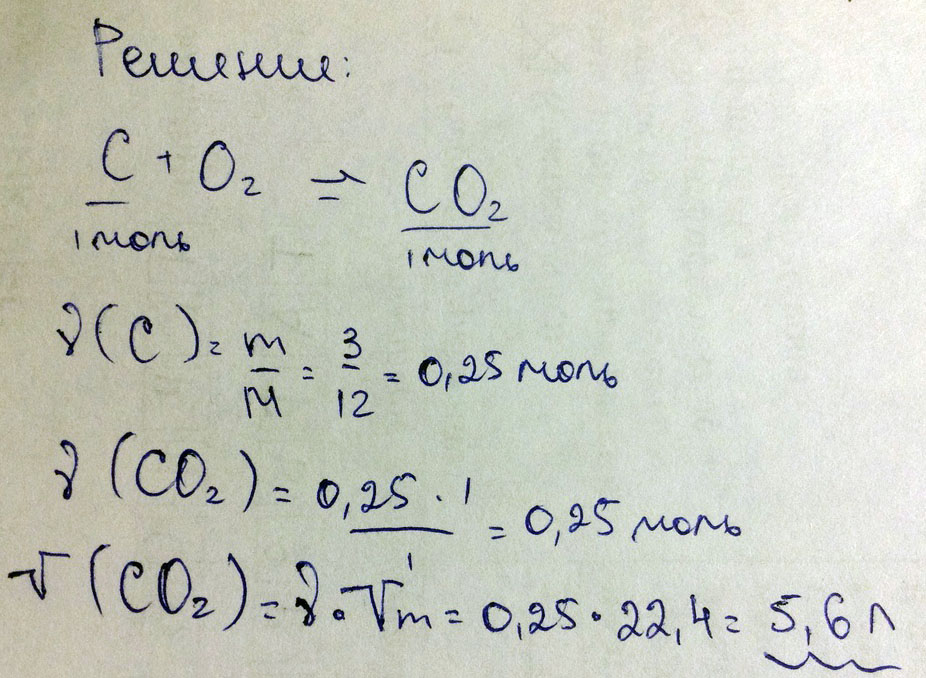 Решение:
C + O₂ = CO₂
1 моль 1 моль
ν(C) = m/M = 3/12 = 0,25 моль
ν(CO₂) = 0,25 · 1/1 = 0,25 моль
V(CO₂) = ν · Vm = 0,25 · 22,4 = 5,6 л